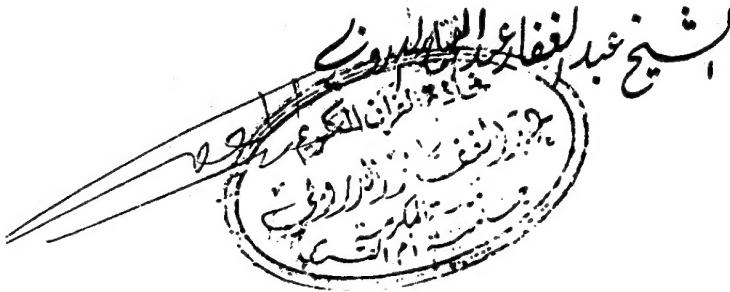 الشيخ عبد الغفار عبد الفتاح الدروبي
خادم القرآن الكريم
عبد الغفار الدروبي
أم القرى
المكرمة